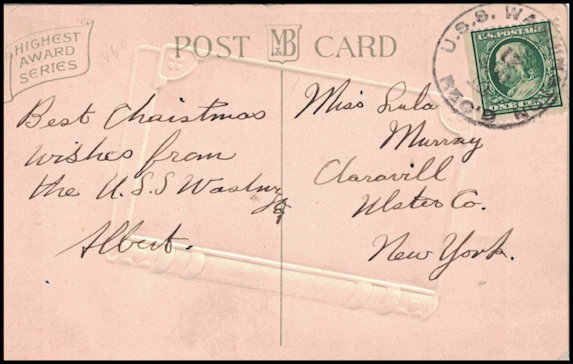 HIGHEST
AWARD
SERIES
POST MB CARD
U.S.S. WA
REC'D
U.S. POSTAGE
ONE CENT
Best Chaistmas
wishes from
the U.S.S Washng
Albert.
Miss Lula
Murray
Claravill
Ulster Co.
New York.